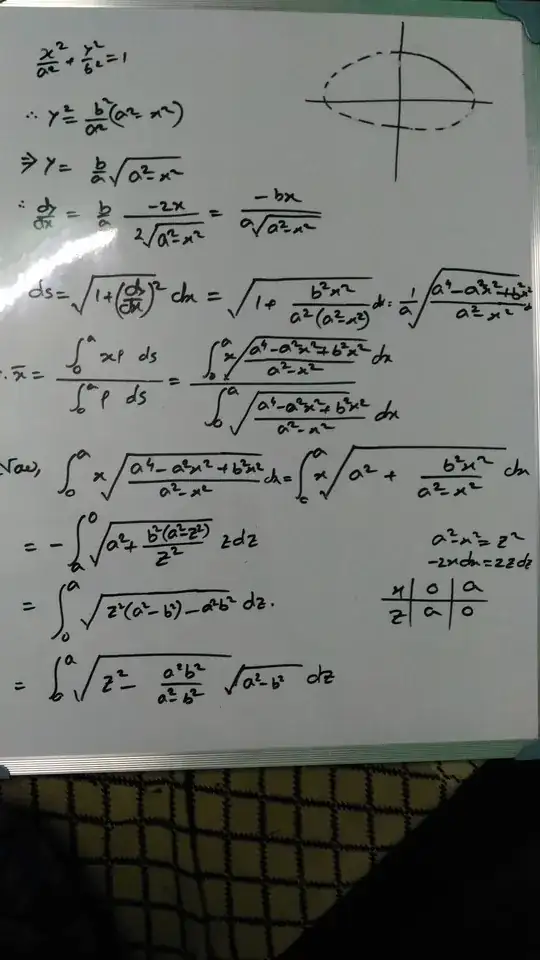 x²/a² + y²/b² = 1
∴ y² = b²/a² (a² – x²)
⇒ y = b/a √(a² – x²)
∴ dy/dx = b/a · -2x / 2√(a² – x²) = -bx / a√(a² – x²)
ds = √(1 + (dy/dx)²) dx = √(1 + b²x² / a²(a² – x²)) dx = 1/a √((a⁴ – a²x² + b²x²) / (a² – x²))
∴ x̄ = ∫₀ᵃ xρ ds / ∫₀ᵃ ρ ds = ∫₀ᵃ x √((a⁴ – a²x² + b²x²) / (a² – x²)) dx / ∫₀ᵃ √((a⁴ – a²x² + b²x²) / (a² – x²)) dx
Now, ∫₀ᵃ x √((a⁴ – a²x² + b²x²) / (a² – x²)) dx = ∫₀ᵃ x √(a² + b²x² / (a² – x²)) dx
= - ∫ₐ⁰ √(a² + b²(a² – z²) / z²) z dz
a² – x² = z²
-2x dx = 2z dz
x | 0 | a
z | a | 0
= ∫₀ᵃ √(z²(a² – b²) – a²b²) dz.
= ∫₀ᵃ √(z² – a²b² / (a² – b²)) √(a² – b²) dz